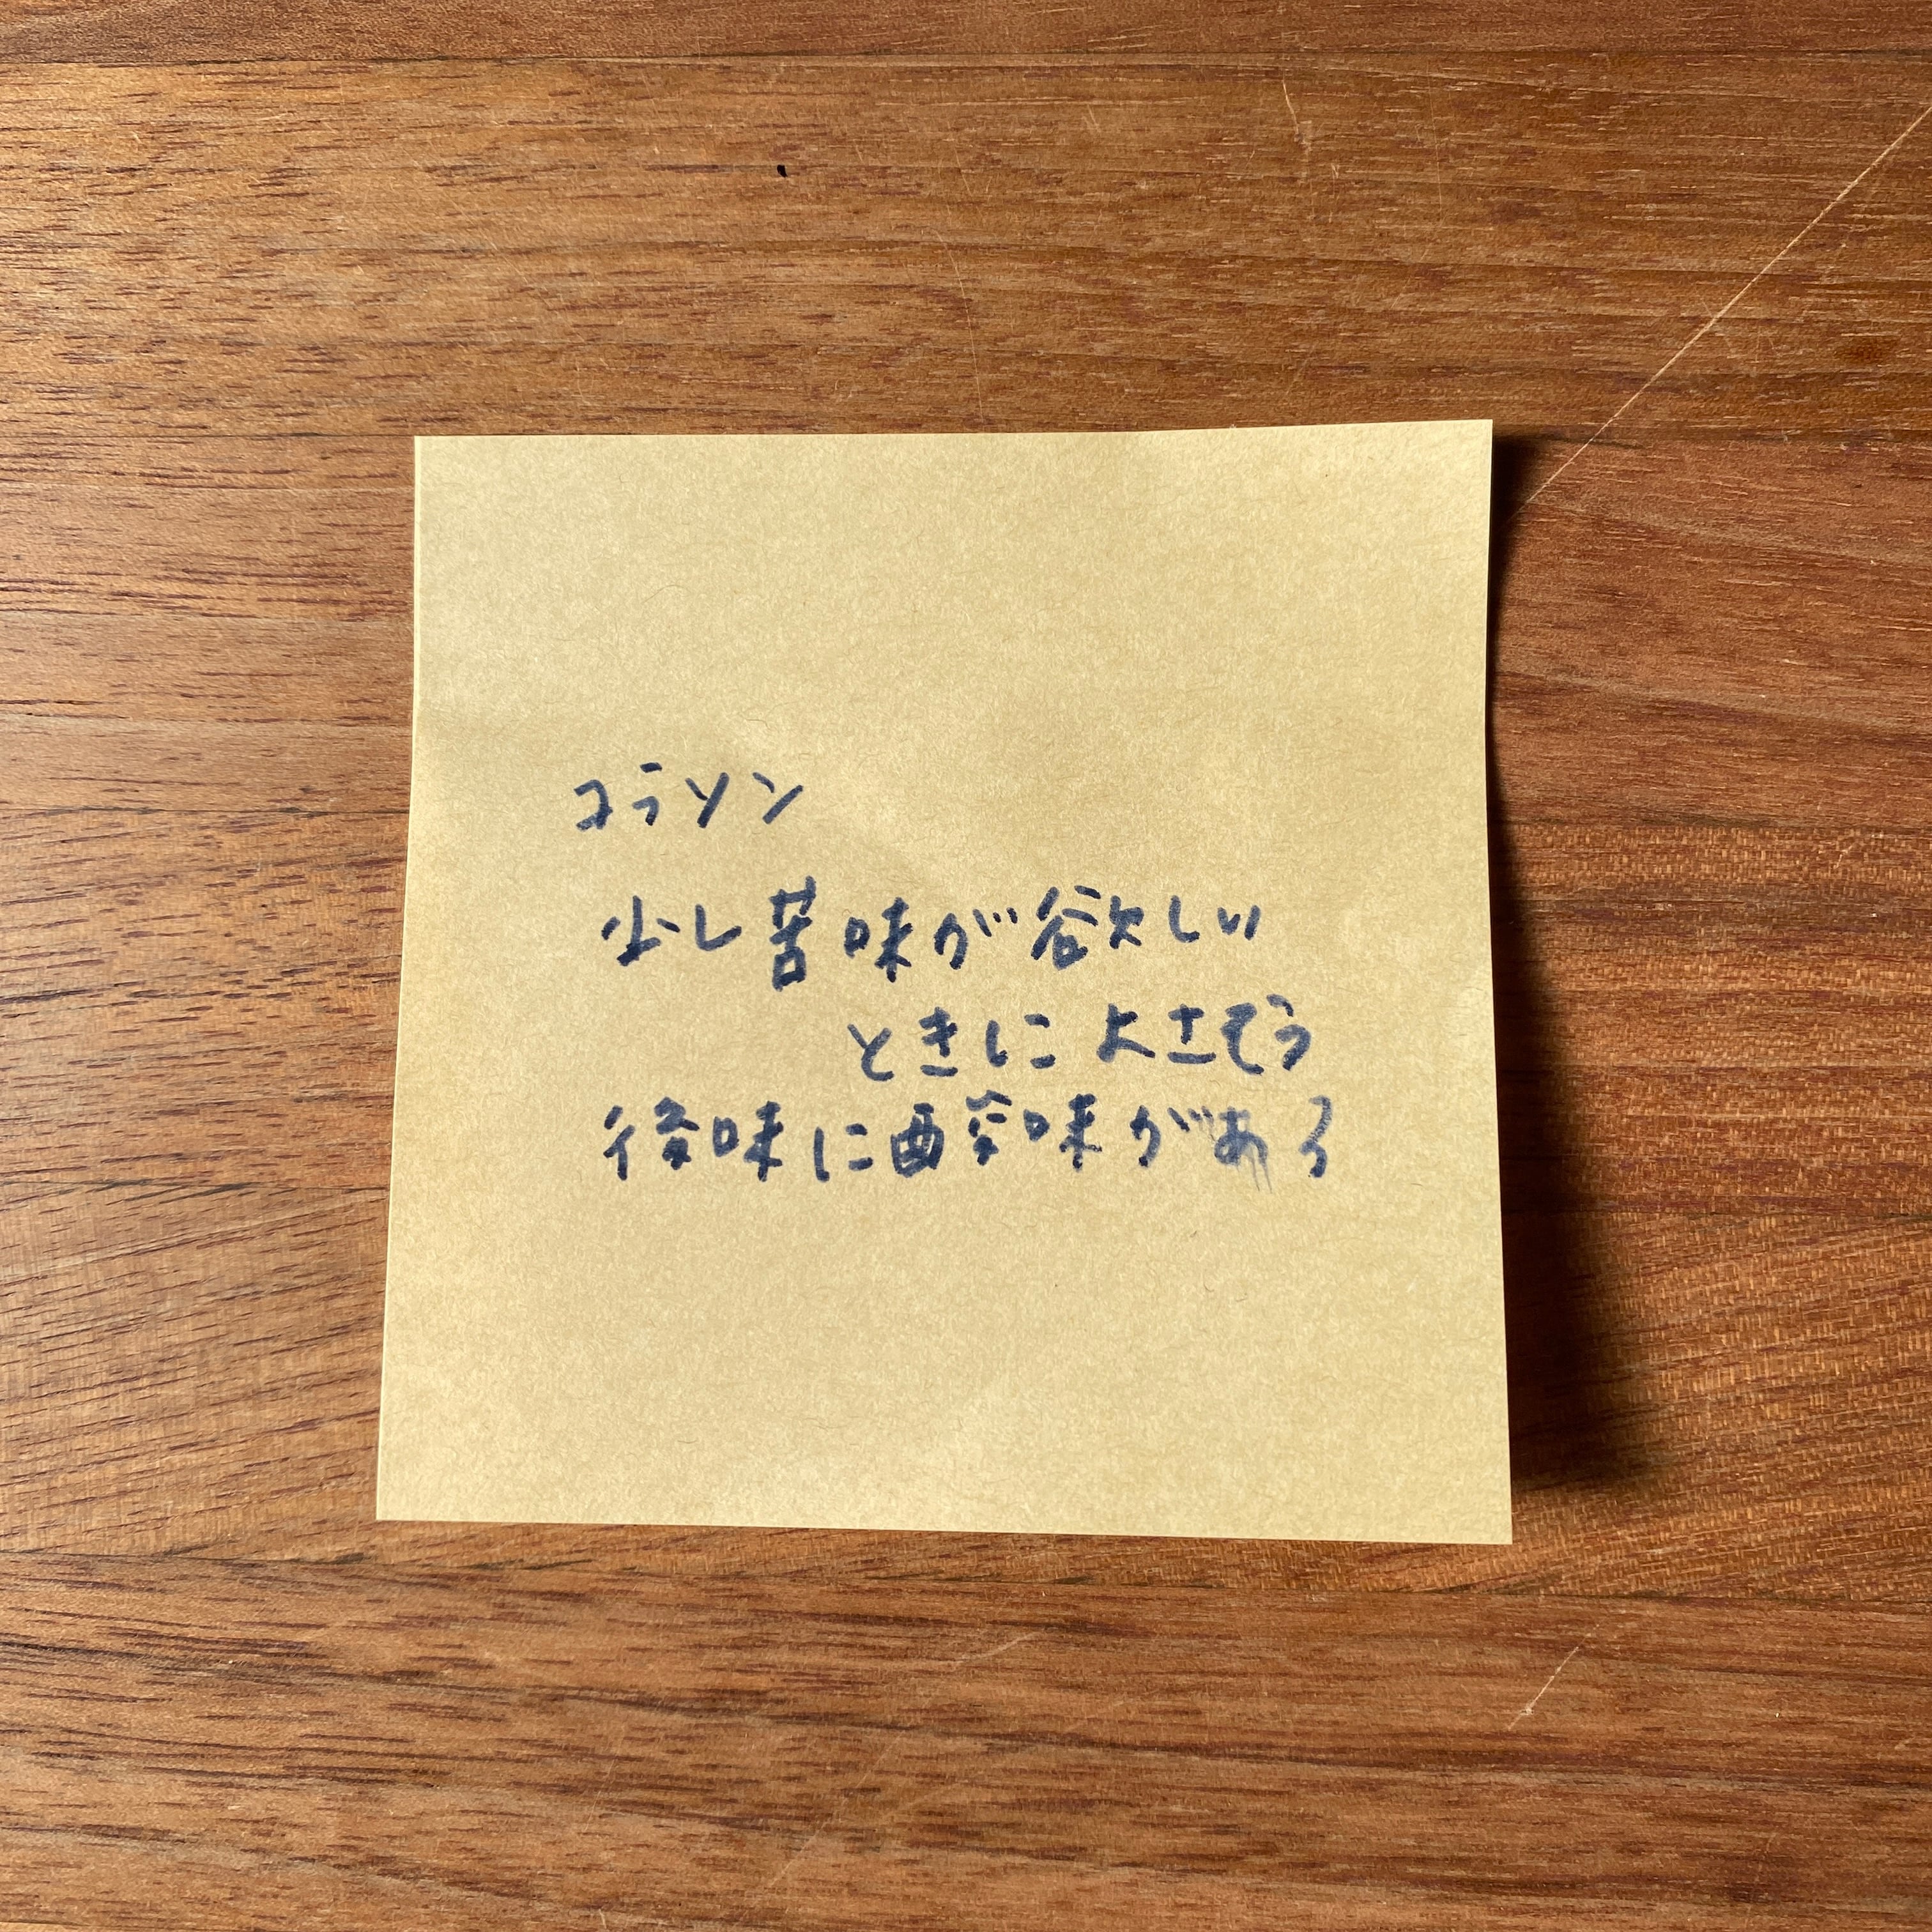 コラソン
少し苦味が欲しい
ときに良さそう
後味に酸味がある